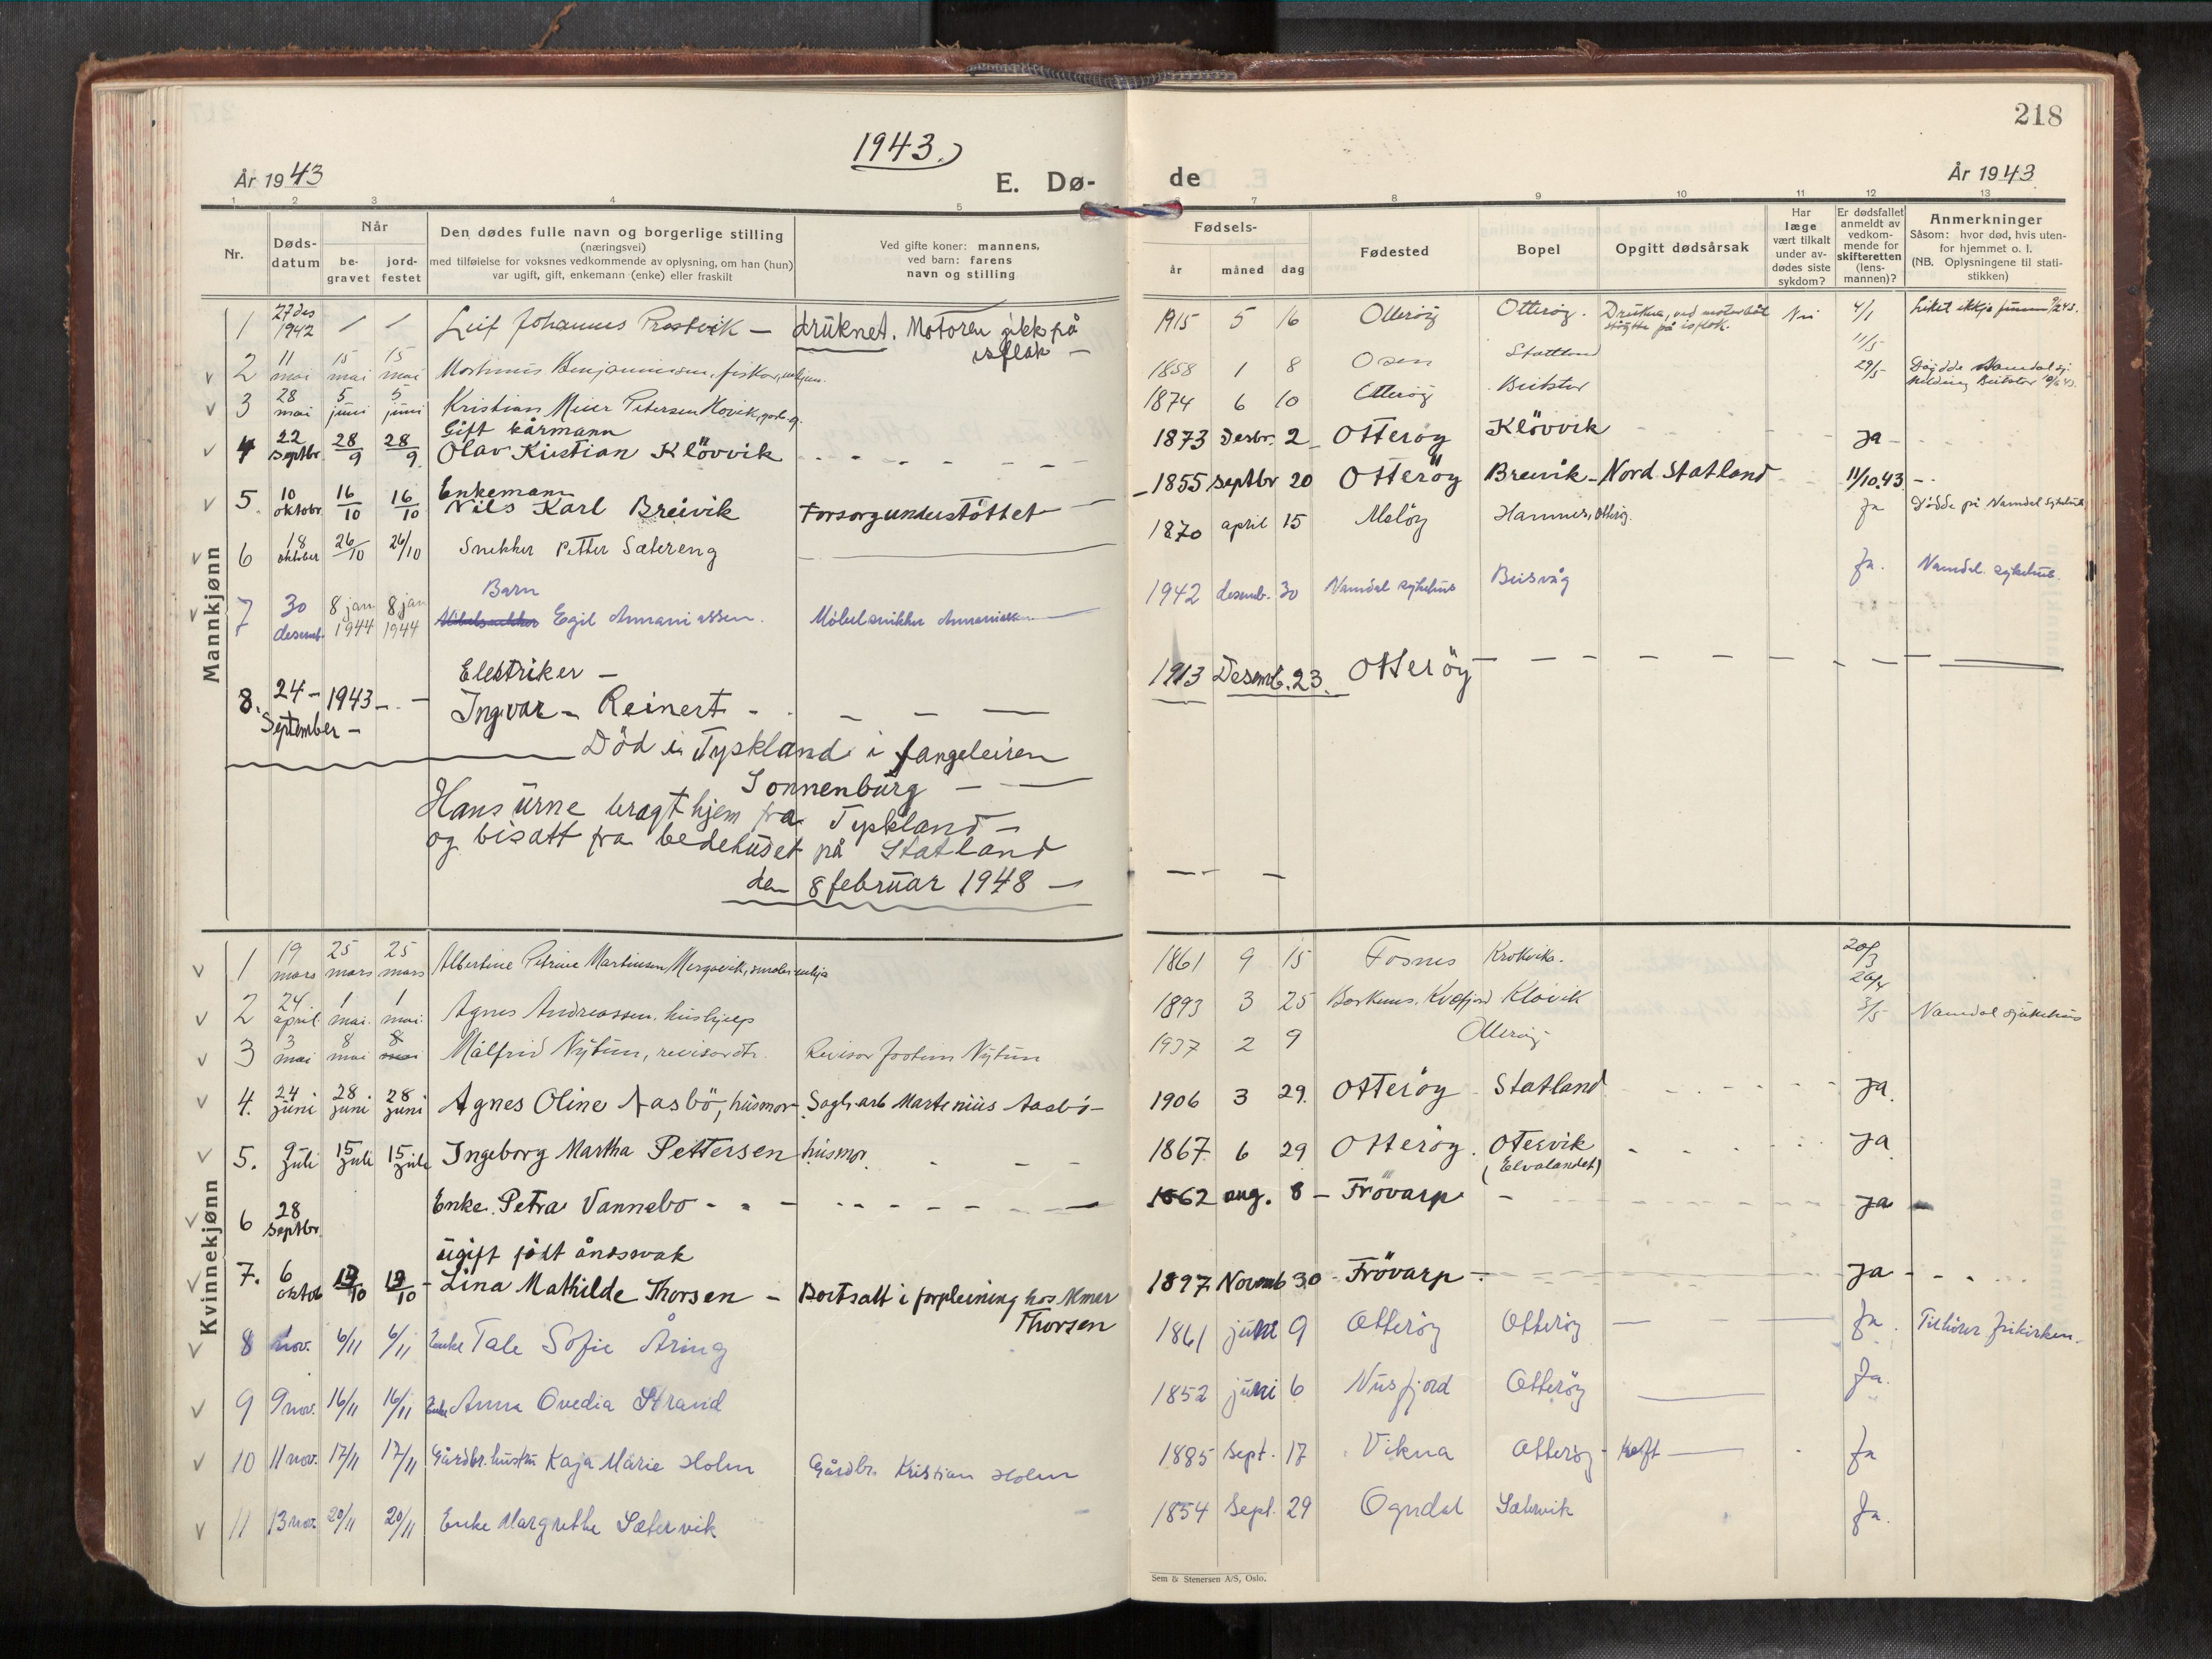 218
1943.
År 1943
E. Dø-
de
År 1943
1 2 3 4 5 7 8 9 10 11 12 13
Nr.
Døds-
datum
Når
be-
gravet
jord-
festet
Den dødes fulle navn og borgerlige stilling
(næringsvei)
med tilføielse for voksnes vedkommende av oplysning, om han (hun)
var ugift, gift, enkemann (enke) eller fraskilt
Ved gifte koner: mannens,
ved barn: farens
navn og stilling
Fødsels-
år måned dag
Fødested
Bopel
Opgitt dødsårsak
Har
læge
vært tilkalt
under av-
dødes siste
sykdom?
Er dødsfallet
anmeldt av
vedkom-
mende for
skifteretten
(lens-
mannen)?
Anmerkninger
Såsom: hvor død, hvis uten-
for hjemmet o. l.
(NB. Oplysningene til stati-
stikken)
Mannkjønn
1 27 des 1942 Leif Johannes Prestvik — druknet. Motoren gikk på
isflak — 1915 5 16 Otterøy Otterøy. Nei 4/1
2 11 mai 15 mai 15 mai Benjaminsen, fisker, 1858 1 8 Osen Statland 11/5
3 28 mai 5 juni 5 juni Kristian Meier Petersen Hovik, 1874 6 10 Otterøy Beitstad 29/5 Namdal
Gift kårmann
4 22 septbr 28/9 28/9 Olav Kristian Klövvik 1873 Desbr. 2 Otteröy Klövvik ja
Enkemann
5. 10 oktobr 16/10 16/10 Nils Karl Breivik Forsorgunderstöttet 1855 septbr 20 Otteröy Breivik - Nord Statland 11/10.43
6 18 oktober 26/10 26/10 Snekker Petter Sætereng 1870 april 15 Meløy Hammer, Otterøy. ja Døde på Namdal sykehus
Barn
7 30 desemb. 8 jan 1944 8 jan 1944 Egil Annaniassen. Møbelsnikker Annaniassen 1942 desemb. 30 Namdal sykehus Beisvåg Ja. Namdal sykehus.
Elektriker —
8. 24 — 1943 — September — Ingvar — Reinert — 1913 Desemb. 23. Otteröy
Död i Tyskland i fangeleiren
Sonnenburg —
Hans urne bragt hjem fra Tyskland —
og bisatt fra bedehuset på Statland
den 8 februar 1948 —
Kvinnekjønn
1 19 mars 25 mars 25 mars Albertine Petrine Martinsen 1861 9 15 Fosnes Krokvik. 20/3
2 24 april 1 mai. 1 mai. Agnes Andreassen, hushjelp 1893 3 25 Kvæfjord Kløvik 26/4 Namdal sjukehus
3 3 mai 8 mai 8 mai Målfrid Nytun, revisordtr. Revisor Nytun 1937 2 9 Otterøy 3/5
4. 24 juni 28 juni 28 juni Agnes Oline Aasbö, husmor Sagb.arb Martenius Aasbö — 1906 3 29. Otteröy Statland ja.
5. 9 juli 15 juli 15 juli Ingeborg Martha Pettersen husmor 1867 6 29 Otteröy. Otervik ja
(Elvalandet)
6 28 septbr. Enke. Petra Vannebo 1862 aug. 8 — Frövarp ja
ugift födt åndssvak
7. 6 oktob 19/10 19/10 Lina Mathilde Thorsen — Bortsatt i forpleining hos
Thorsen 1897 Novemb 30 Frövarp ja
8 1 nov. 6/11 6/11 Enke Tale Sofie Åring 1861 juni 9 Otterøy Otterøy Ja. Tilhører frikirken.
9 9 nov. 16/11 16/11 Enke Anna Ovedia Strand 1852 juni 6 Nusfjord Otterøy Ja.
10 11 nov. 17/11 17/11 Gårdbr. hustru Kaja Marie Holm Gårdbr. Kristian Holm 1885 Sept. 17 Vikna Otterøy Kreft Ja
11 13 nov. 20/11 20/11 Enke Margrethe Sætervik 1854 Sept. 29 Ogndal Sætervik Ja.
Sem & Stenersen A/S, Oslo.